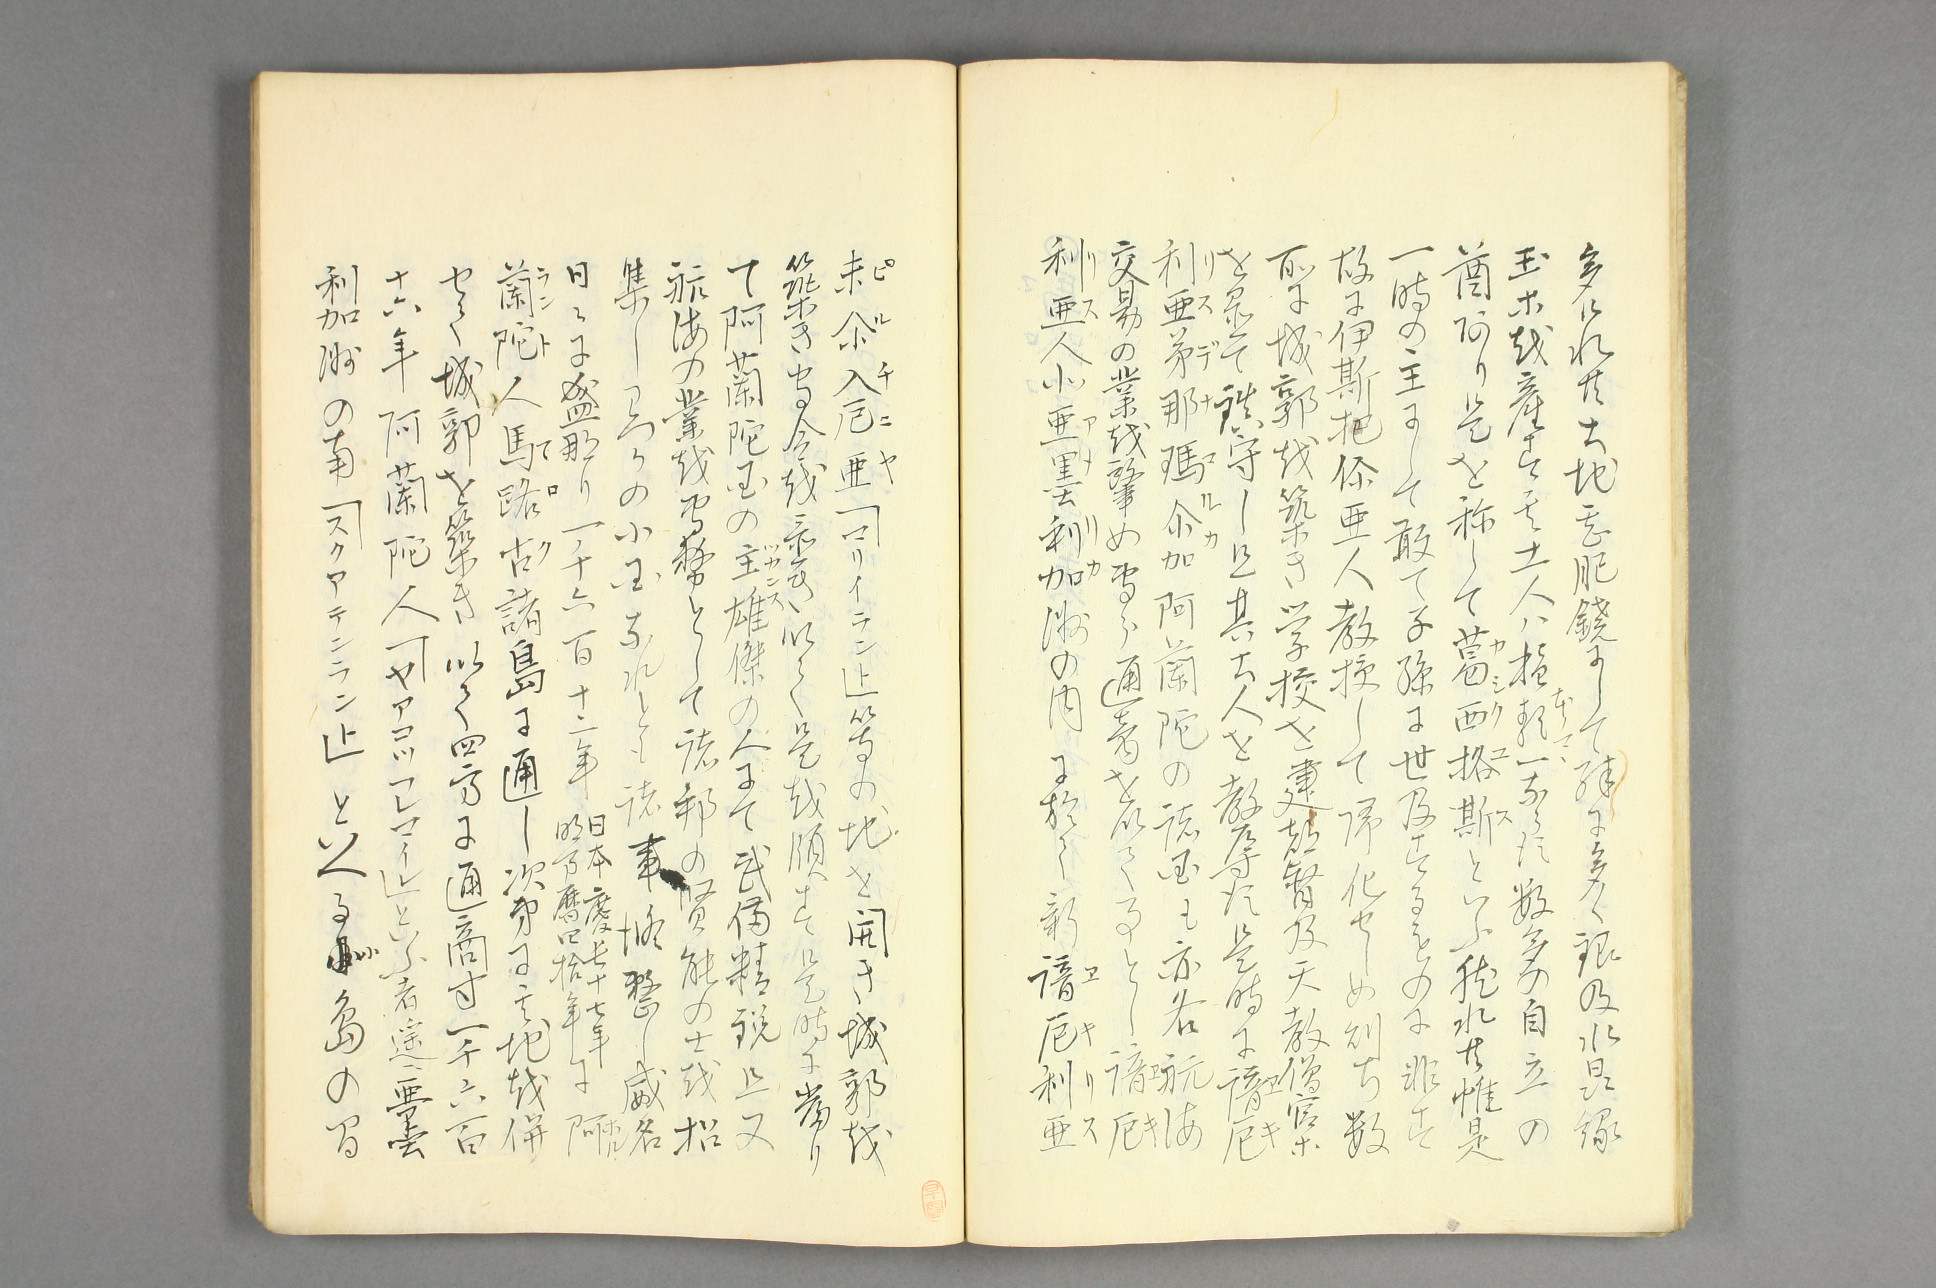 多けれ共土地甚肥饒にして殊に多く銀及水晶緑
玉等越産す其土人ハ種類一ならす数多の自立の
酋阿り是を称して葛西格斯といふ然れ共惟是
一時の主にして敢て子孫に世及するものに非す
故に伊斯把你亜人教授して帰化せしめ則ち数
所に城郭越築き学校を建都督及天教僧官等
を置て鎮守し且其土人を教導す是時に諳厄
利亜第那瑪尓加阿蘭陀の諸国も亦各航海
交易の業越肇め専ら通商を以てるとし諳厄
利亜人小亜墨利加洲の内に於て新諳厄利亜
未尓入尼亜「マリイランド」等の地を開き城郭越
築き専令越示き以て是越順す是時に当り
て阿蘭陀国の主雄傑の人にて武備精鋭且又
航海の業越専務として諸邦の賢能の士越招
集しわつかの小国なれとも諸事脩整し威名
日々に盛那り一千六百十二年日本慶長十七年明万暦四拾年に阿
蘭陀人馬路古諸島に通し次第に其地越併
せて城郭を築き以て四方に通商す一千六百
十六年阿蘭陀人「ヤアコッフレマイレ」といふ者遂ニ亜墨
利加洲の南「スタアテンランド」といへる島の間